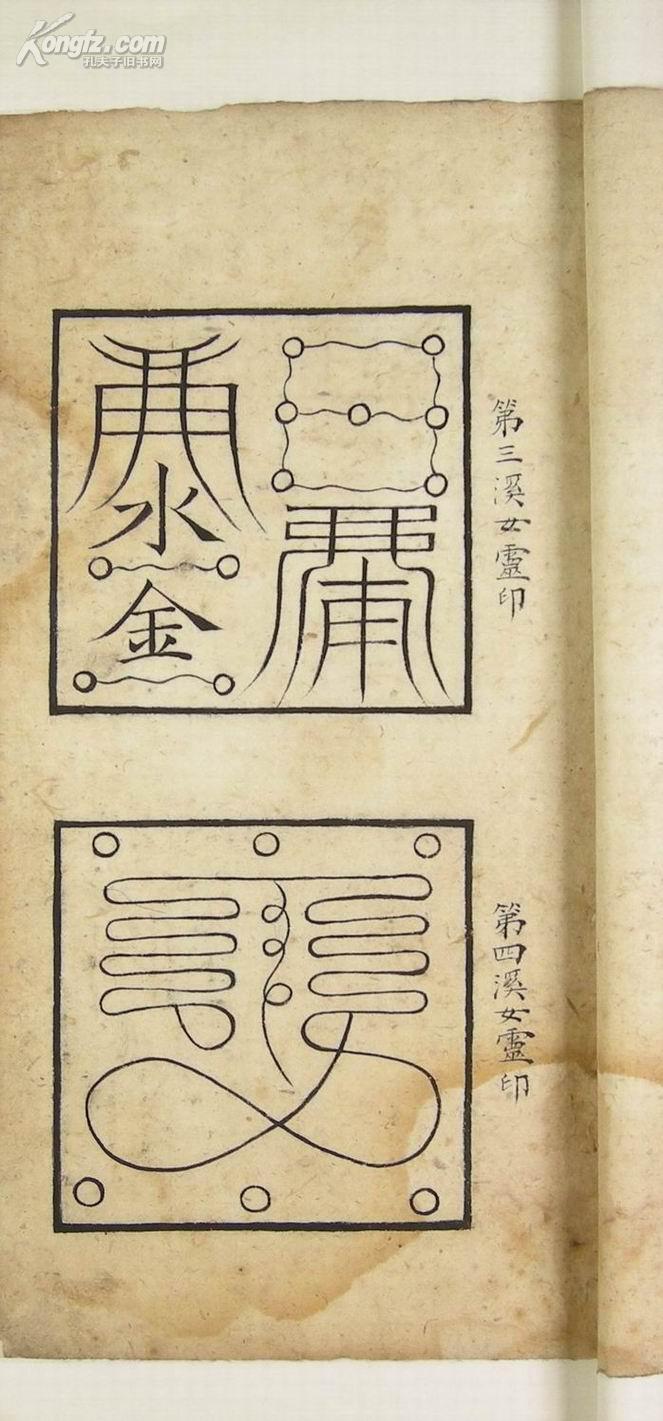 Kongfz.com
孔夫子旧书网
第三溪女靈印
水
金
第四溪女靈印